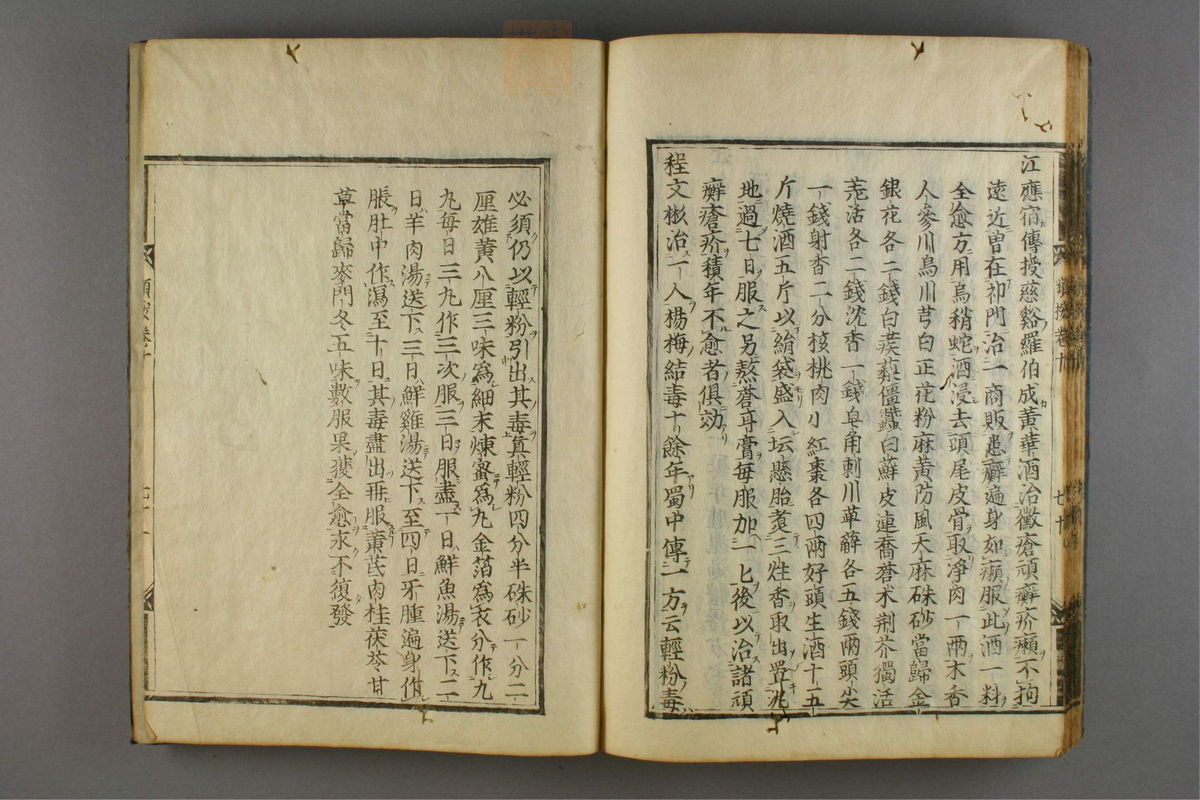 江應宿傳授慈谿羅伯成黃華酒治黴瘡頑癬疥癩不拘
遠近曽在祁門治一商販患癬遍身如癩服此酒一料
全愈方用烏稍蛇酒浸去頭尾皮骨取淨肉一兩木香
人參川烏川芎白芷花粉麻黃防風天麻硃砂當歸金
銀花各二錢白蒺藜僵蠶白蘚皮連喬蒼朮荆芥獨活
羌活各二錢沈香一錢皂角刺川萆薢各五錢兩頭尖
一錢射香二分核桃肉小紅棗各四兩好頭生酒十五
斤燒酒五斤以絹袋盛入坛懸胎煑三炷香取出置
地過七日服之另熬蒼耳膏每服加一匕後以治諸頑
癬瘡疥積年不愈者俱効
程文彬治一人楊梅結毒十餘年蜀中傳一方云輕粉毒
七十
必須仍以輕粉引出其毒真輕粉四分半硃砂一分二
厘雄黃八厘三味爲細末煉蜜爲丸金箔爲衣分作九
丸每日三丸作三次服三日服盡一日鮮魚湯送下二
日羊肉湯送下三日鮮雞湯送下至四日牙腫遍身作
脹肚中作瀉至十日其毒盡出再服黃芪肉桂茯苓甘
草當歸麥門冬五味數服果獲全愈永不復發